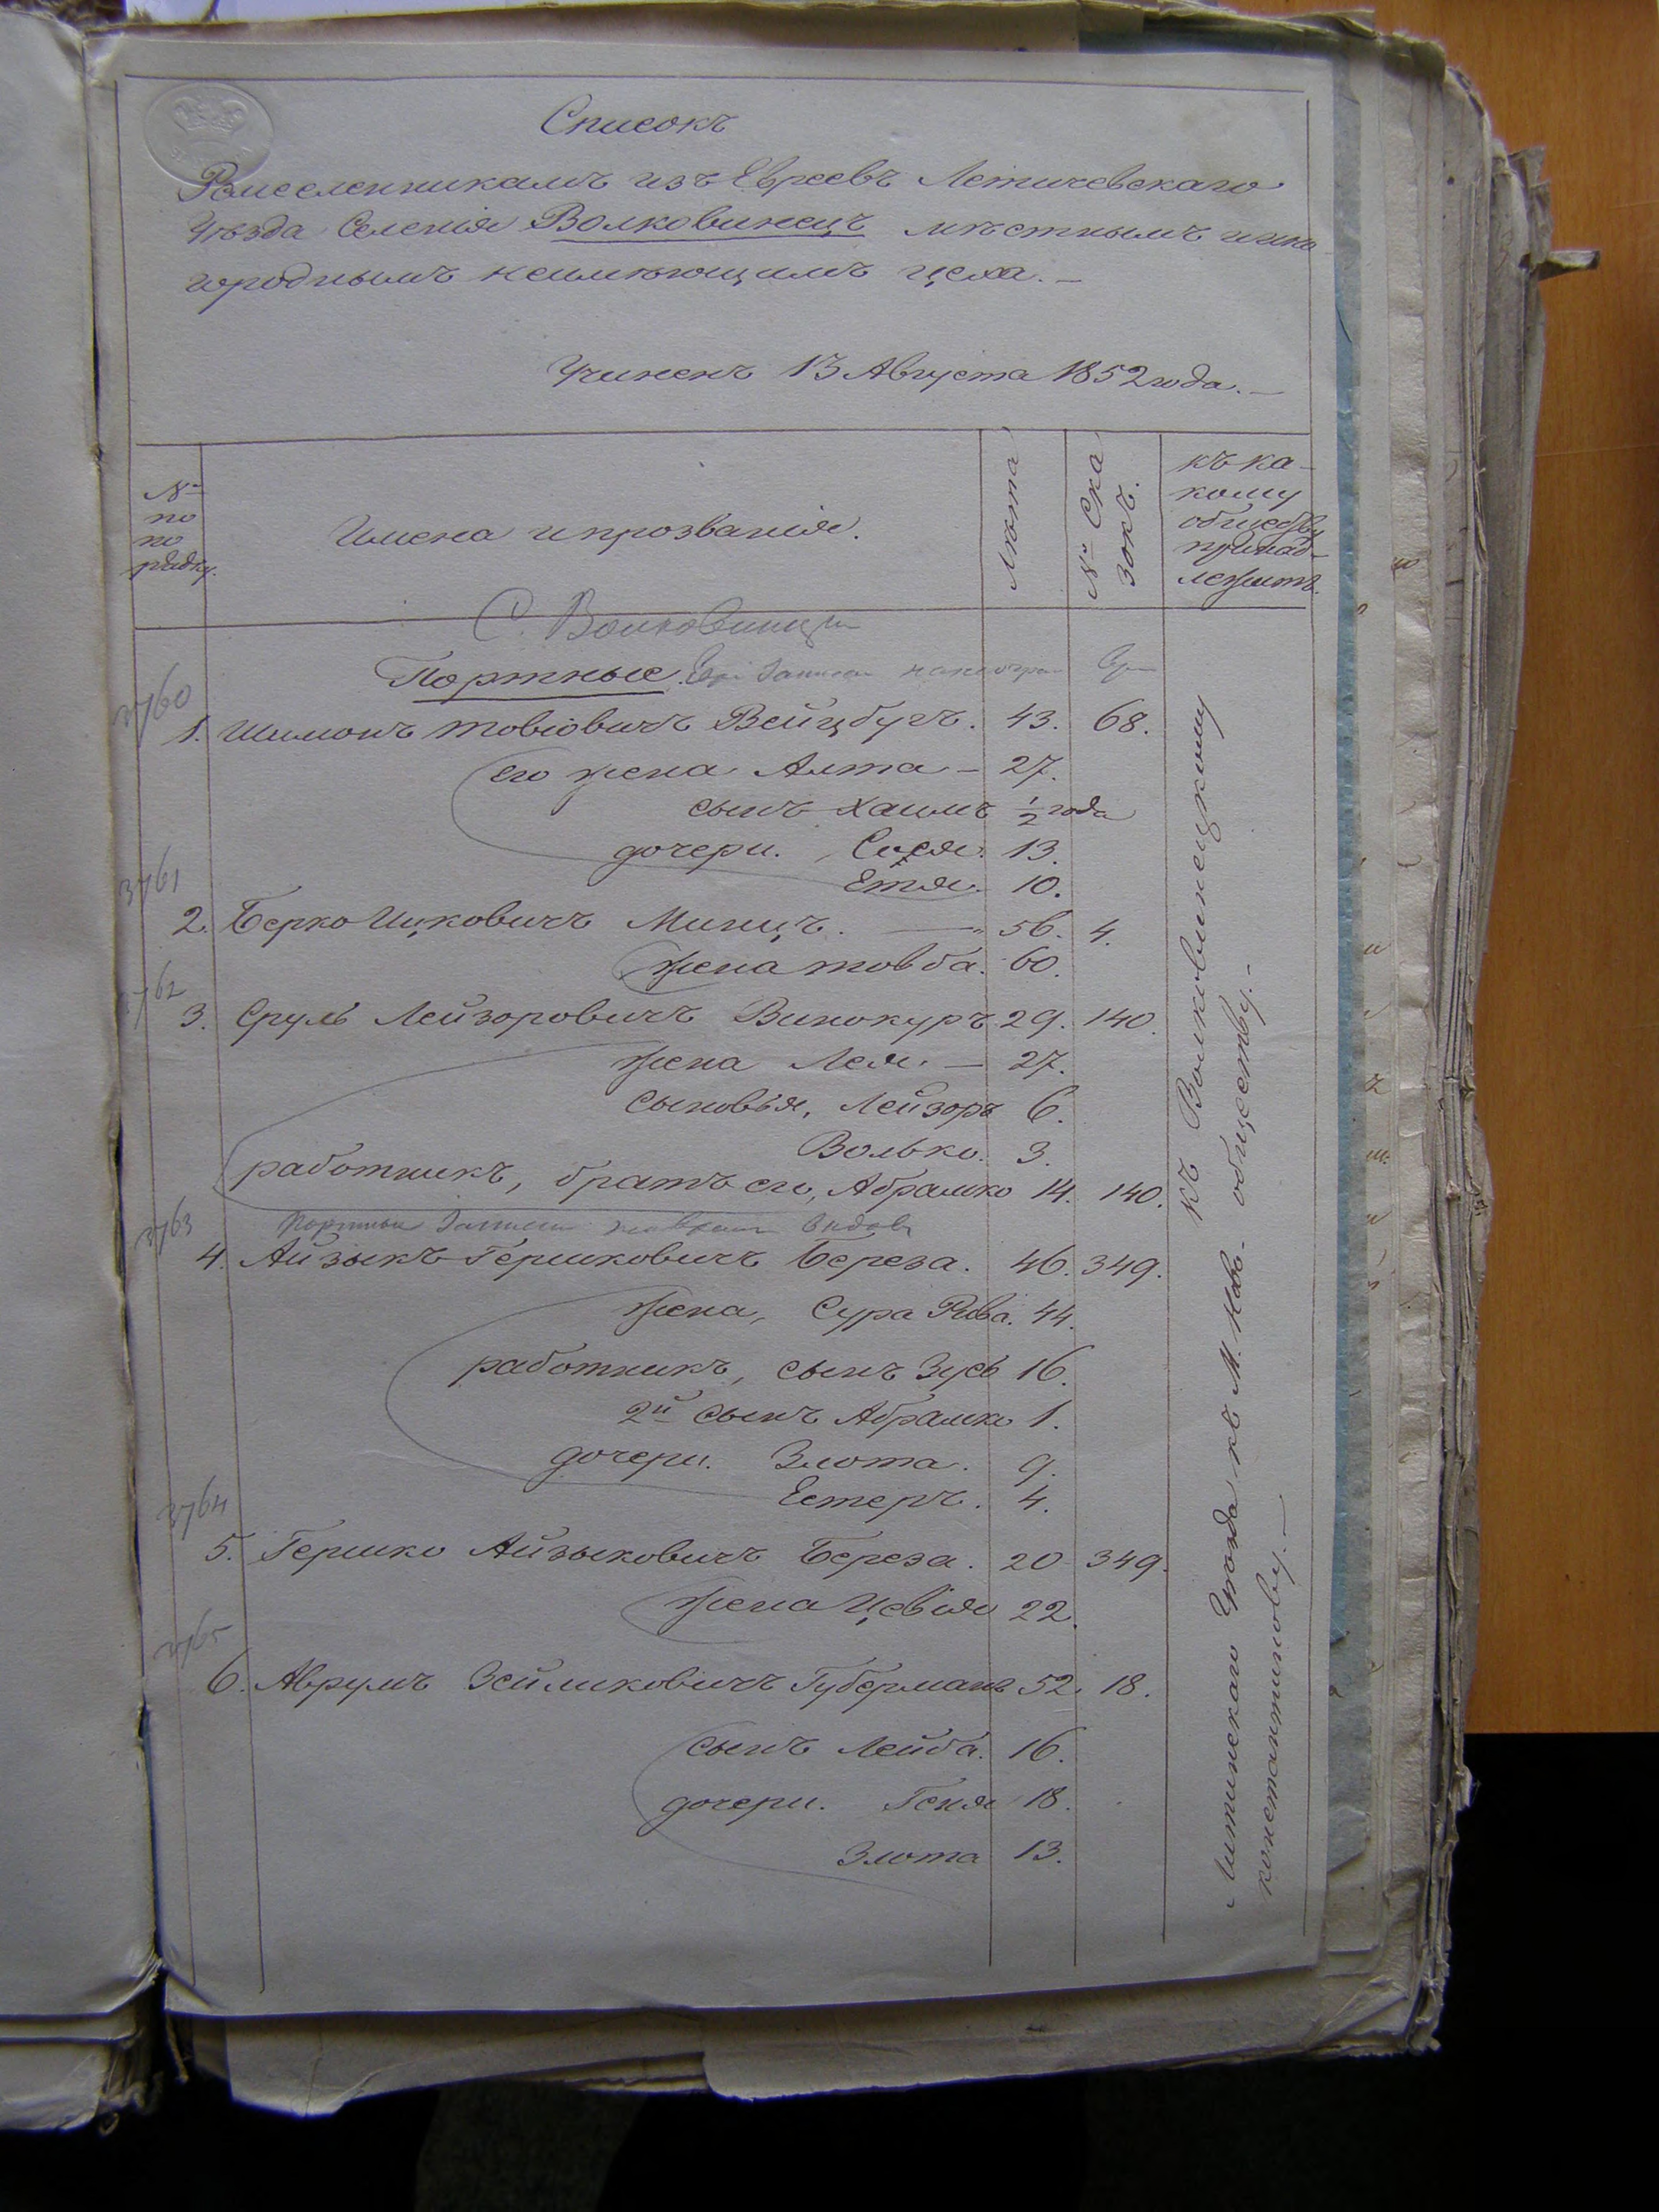 Списокъ
Ремесленникамъ изъ Евреевъ Летичевскаго
Уѣзда Селенія Волковинецъ мѣстнымъ и ино
городнымъ неимѣющимъ цеха. —
Учиненъ 13 Августа 1852 года. —
№ по по рядку.
Имена и прозванія.
Лѣта
№ Ска зокъ.
къ ка-
кому
обществу
принад-
лежитъ.
С. Волковинцы
Портные.
3760
1. Шимонъ Товіовичъ Вейцбугъ. 43. 68.
его жена Алта — 27.
сынъ Хаимъ ½ года
дочери. Сося. 13.
Етя. 10.
3761
2. Берко Ицковичъ Минцъ. — 56. 4.
жена товба. 60.
3762
3. Сруль Лейзоровичъ Винокуръ 29. 140.
жена Лея. — 27.
сыновья, Лейзоръ 6.
Волько. 3.
работникъ, братъ его, Абрамко 14. 140.
3763
4. Айзыкъ Гершковичъ Береза. 46. 349.
жена, Сура Рива. 44.
работникъ, сынъ Зусь 16.
2й сынъ Абрамко 1.
дочери. Злота. 9.
Естеръ. 4.
3764
5. Гершко Айзыковичъ Береза. 20 349.
жена Цевія 22.
3765
6. Аврумъ Зейликовичъ Губерманъ 52. 18.
сынъ Лейба. 16.
дочери. Геня 18.
Злота 13.
къ Волковинецкому
обществу. —
Литинскаго Уѣзда къ М. Ново-
константинову. —